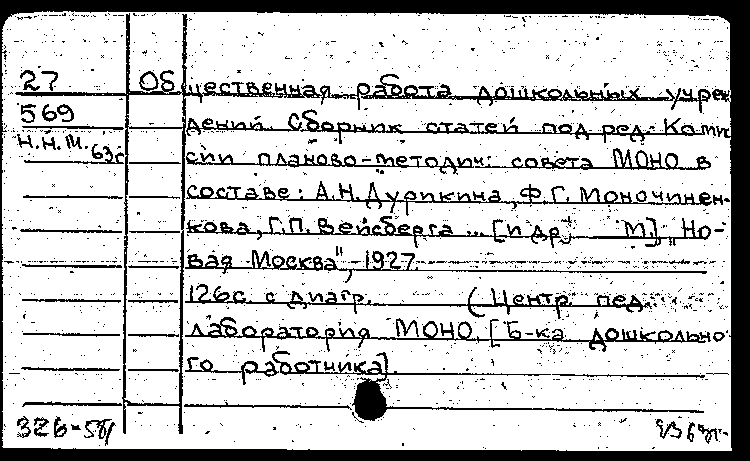 27 Общественная работа дошкольных учреж
569 дений. Сборник статей под ред. Комис
Н.Н.М. 63с сии планово-методич. совета МОНО в
составе: А.Н. Дурикина, Ф.Г. Моночинен-
кова, Г.П. Вейсберга ... [и др] М.], "Но-
вая Москва", 1927.
126с. с диагр. (Центр. пед.
лаборатория МОНО. [Б-ка дошкольно
го работника].
326-58